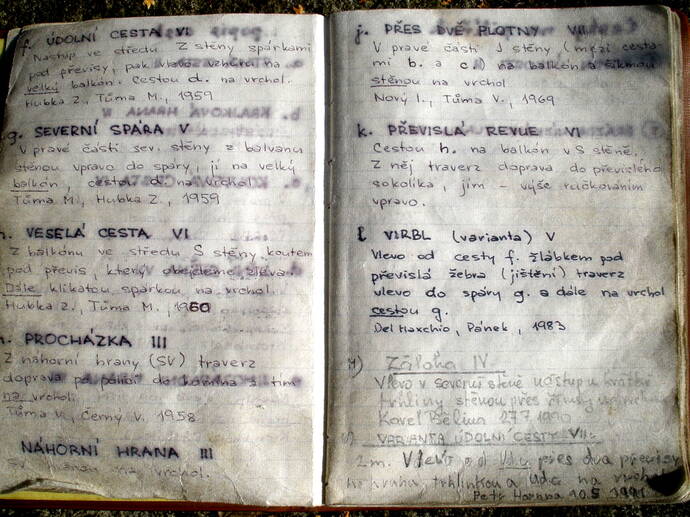 f. ÚDOLNÍ CESTA VI
Nástup ve středu Z stěny spárkami
pod převisy, pak vlevo vzhůru na
velký balkón. Cestou d. na vrchol.
Hubka Z., Tůma M., 1959
g. SEVERNÍ SPÁRA V
V pravé části sev. stěny z balvanu
stěnou vpravo do spáry, jí na velký
balkón, cestou d. na vrchol.
Tůma M., Hubka Z., 1959
h. VESELÁ CESTA VI
Z balkónu ve středu S stěny koutem
pod převis, který obejdeme zleva.
Dále klikatou spárkou na vrchol.
Hubka Z., Tůma M., 1960
PROCHÁZKA III
Z náhorní hrany (SV) traverz
doprava po polici do komína a tím
na vrchol.
Tůma V., Černý V. 1958
NÁHORNÍ HRANA III
SV hranou na vrchol.
j. PŘES DVĚ PLOTNY VII
V pravé části J stěny (mezi cesta
mi b. a c.) na balkón a šikmou
stěnou na vrchol
Nový I., Tůma V., 1969
k. PŘEVISLÁ REVUE VI
Cestou h. na balkón v S stěně.
Z něj traverz doprava do převislého
sokolíka, jím - výše ručkováním
vpravo.
l VIRBL (varianta) V
Vlevo od cesty f. žlábkem pod
převislá žebra (jištění) traverz
vlevo do spáry g. a dále na vrchol
cestou g.
Del Maschio, Pánek, 1983
Záloha IV
Vlevo v severní stěně nástup u krátké
trhliny stěnou přes
Karel Bělina 27.7.1990
VARIANTA ÚDOLNÍ CESTY VII
2m. Vlevo od Údc přes dva převisy
na hranu, trhlinkou a Údc na vrchol
Petr 10.5 1991